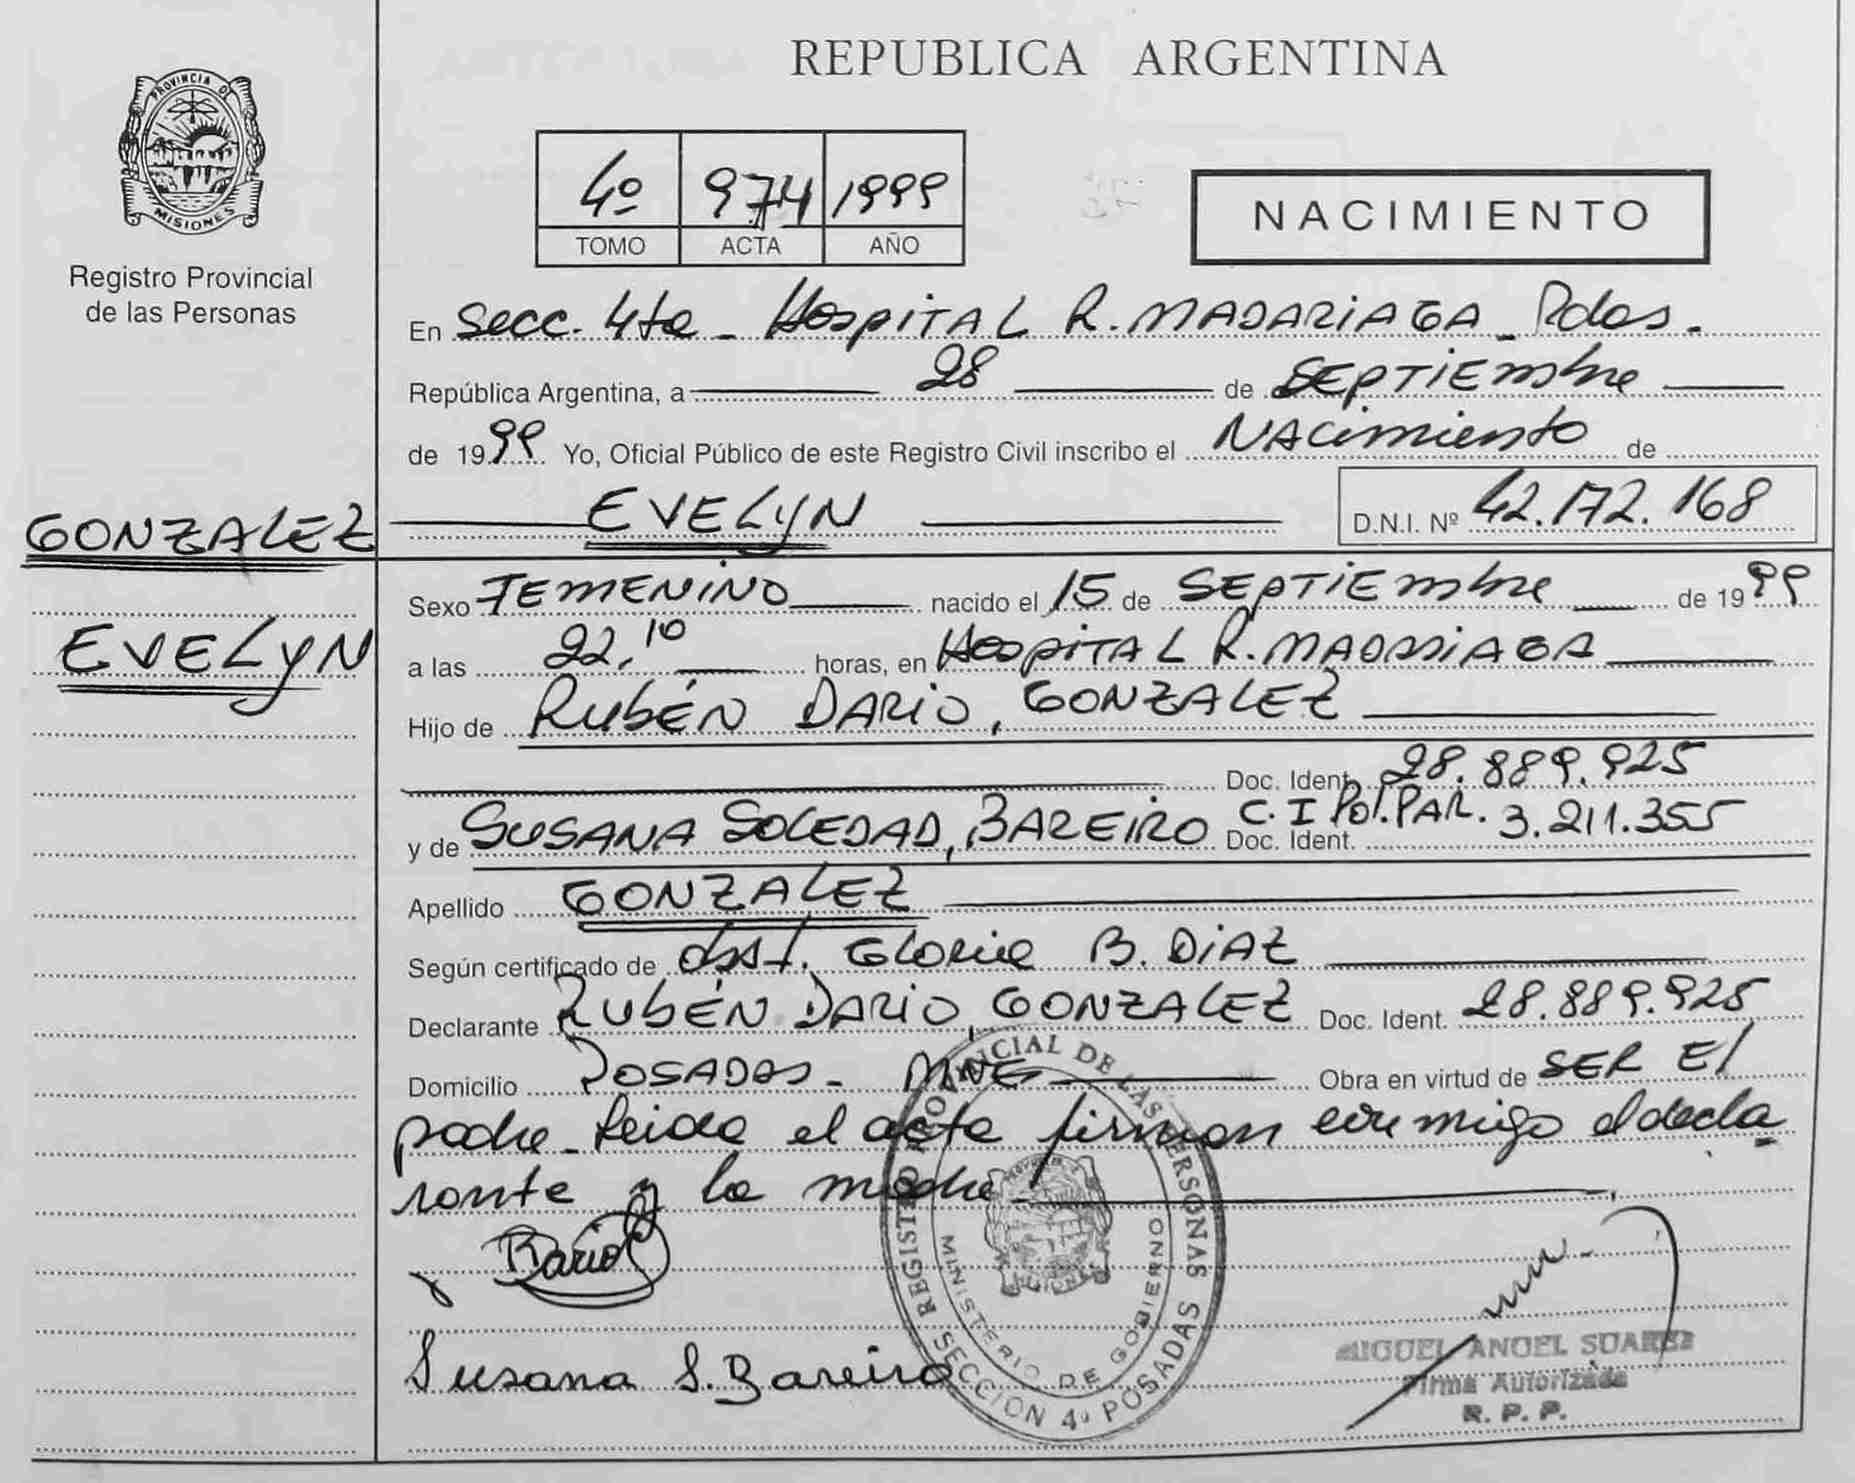 REPUBLICA ARGENTINA
PROVINCIA DE
MISIONES
Registro Provincial
de las Personas
4º 974 1999
TOMO ACTA AÑO
NACIMIENTO
En Secc. 4ta - Hospital R. MADARIAGA - Pdas.
República Argentina, a 28 de SEPTIEmbre
de 1999 Yo, Oficial Público de este Registro Civil inscribo el NAcimiento de
EVELyN D.N.I. Nº 42.172.168
GONZALEZ
EVELyN
Sexo FEMENINO nacido el 15 de SEPTIEmbre de 1999
a las 22,10 horas, en Hospital R. MADARIAGA
Hijo de RubÉN DARio, GONZALEZ
Doc. Ident. 28.889.925
y de SUSANA SOLEDAD, BAREIRO Doc. Ident. C.I Pol.PAR. 3.211.355
Apellido GONZALEZ
Según certificado de Obst. Gloria B. DiAZ
Declarante RubÉN DARio GONZALEZ Doc. Ident. 28.889.925
Domicilio POSADAS - MNES Obra en virtud de SER El
padre - Leida el acta firman conmigo el decla
rante y la madre -
Dario
Susana S. Bareiro
REGISTRO PROVINCIAL DE LAS PERSONAS
SECCION 4ª POSADAS
MINISTERIO DE GOBIERNO
MIGUEL ANGEL SUAREZ
Firma Autorizada
R. P. P.